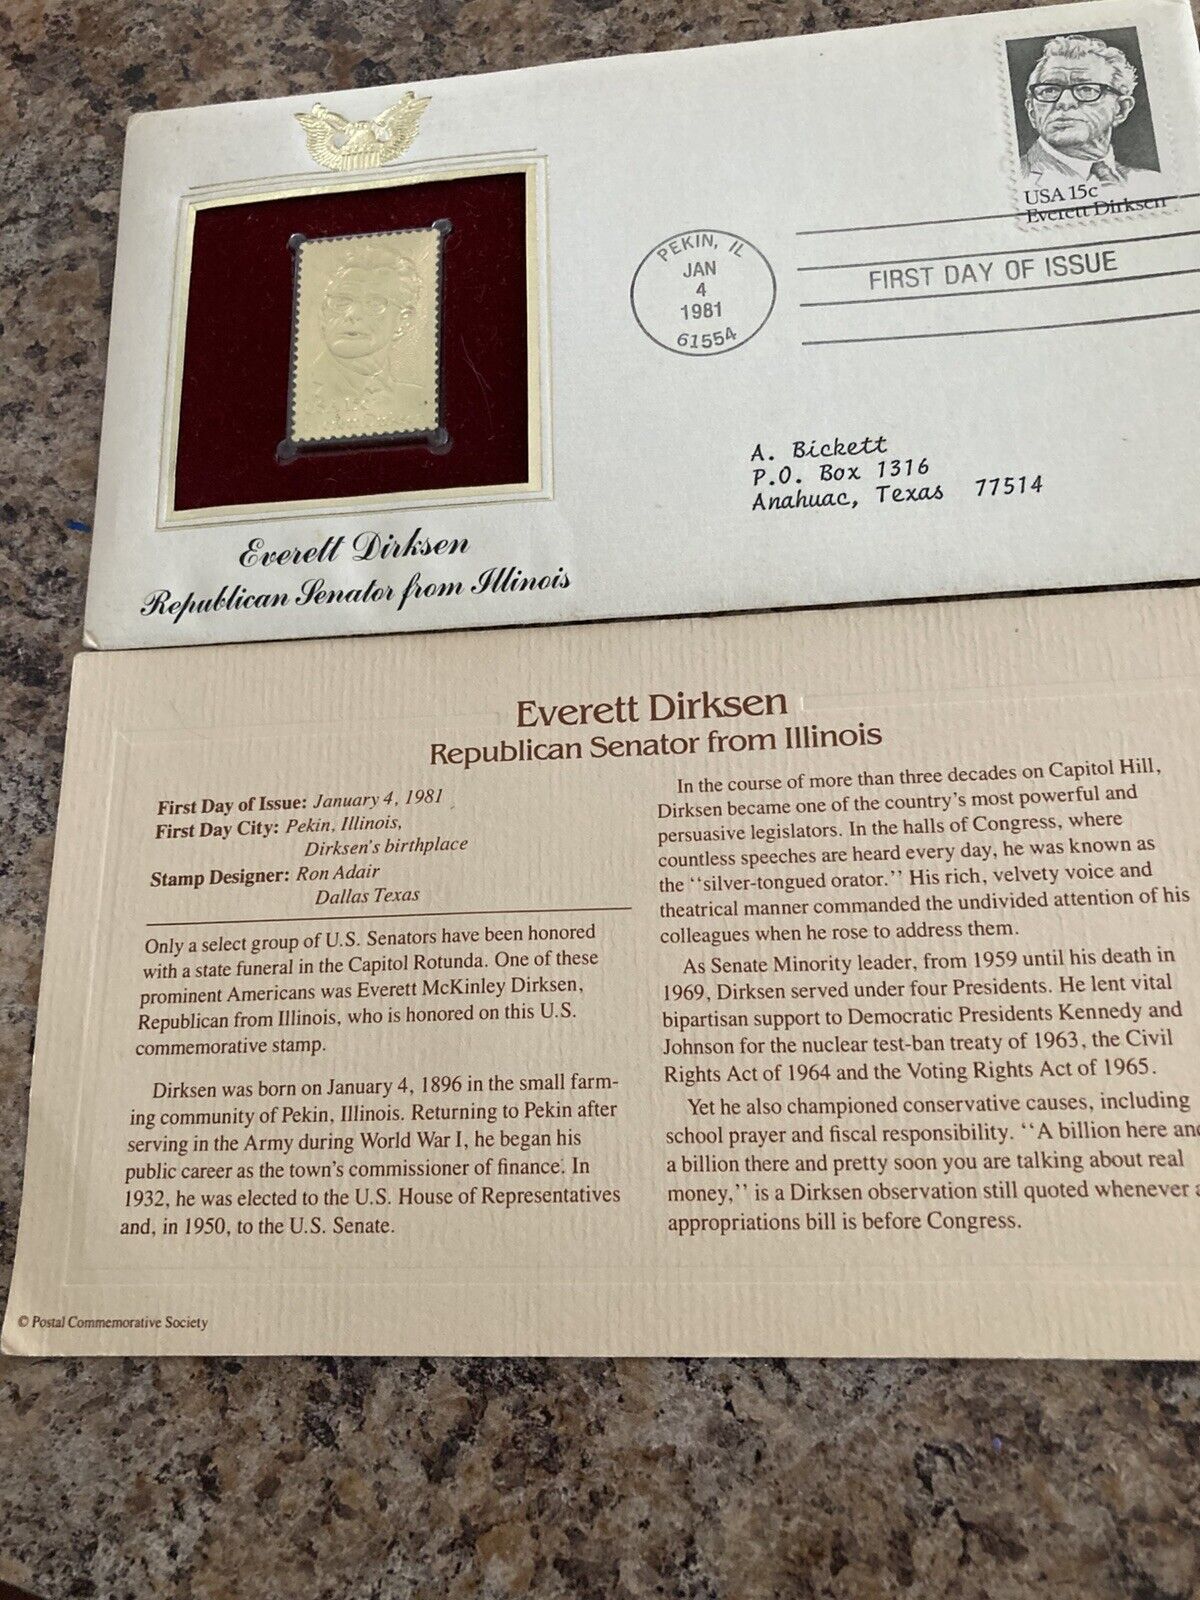 USA 15c
Everett Dirksen
PEKIN, IL
JAN
4
1981
61554
FIRST DAY OF ISSUE
A. Bickett
P.O. Box 1316
Anahuac, Texas 77514
Everett Dirksen
Republican Senator from Illinois
Everett Dirksen
Republican Senator from Illinois
First Day of Issue: January 4, 1981
First Day City: Pekin, Illinois,
Dirksen's birthplace
Stamp Designer: Ron Adair
Dallas Texas
Only a select group of U.S. Senators have been honored
with a state funeral in the Capitol Rotunda. One of these
prominent Americans was Everett McKinley Dirksen,
Republican from Illinois, who is honored on this U.S.
commemorative stamp.
Dirksen was born on January 4, 1896 in the small farm-
ing community of Pekin, Illinois. Returning to Pekin after
serving in the Army during World War I, he began his
public career as the town's commissioner of finance. In
1932, he was elected to the U.S. House of Representatives
and, in 1950, to the U.S. Senate.
In the course of more than three decades on Capitol Hill,
Dirksen became one of the country's most powerful and
persuasive legislators. In the halls of Congress, where
countless speeches are heard every day, he was known as
the ‘‘silver-tongued orator.’’ His rich, velvety voice and
theatrical manner commanded the undivided attention of his
colleagues when he rose to address them.
As Senate Minority leader, from 1959 until his death in
1969, Dirksen served under four Presidents. He lent vital
bipartisan support to Democratic Presidents Kennedy and
Johnson for the nuclear test-ban treaty of 1963, the Civil
Rights Act of 1964 and the Voting Rights Act of 1965.
Yet he also championed conservative causes, including
school prayer and fiscal responsibility. ‘‘A billion here and
a billion there and pretty soon you are talking about real
money,’’ is a Dirksen observation still quoted whenever a
appropriations bill is before Congress.
© Postal Commemorative Society